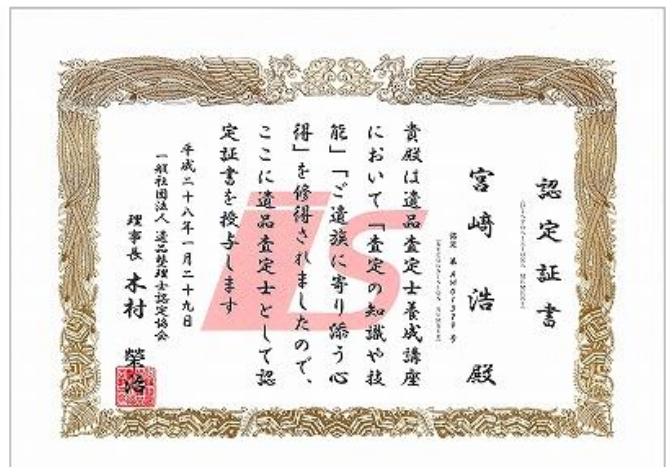 認定証書
宮崎 浩 殿
貴殿は遺品査定士養成講座
において「査定の知識や技
能」「ご遺族に寄り添う心
得」を修得されましたので、
ここに遺品査定士として認
定証書を授与します
平成二十八年一月二十九日
一般社団法人 遺品整理士認定協会
理事長 木村 榮治
ils